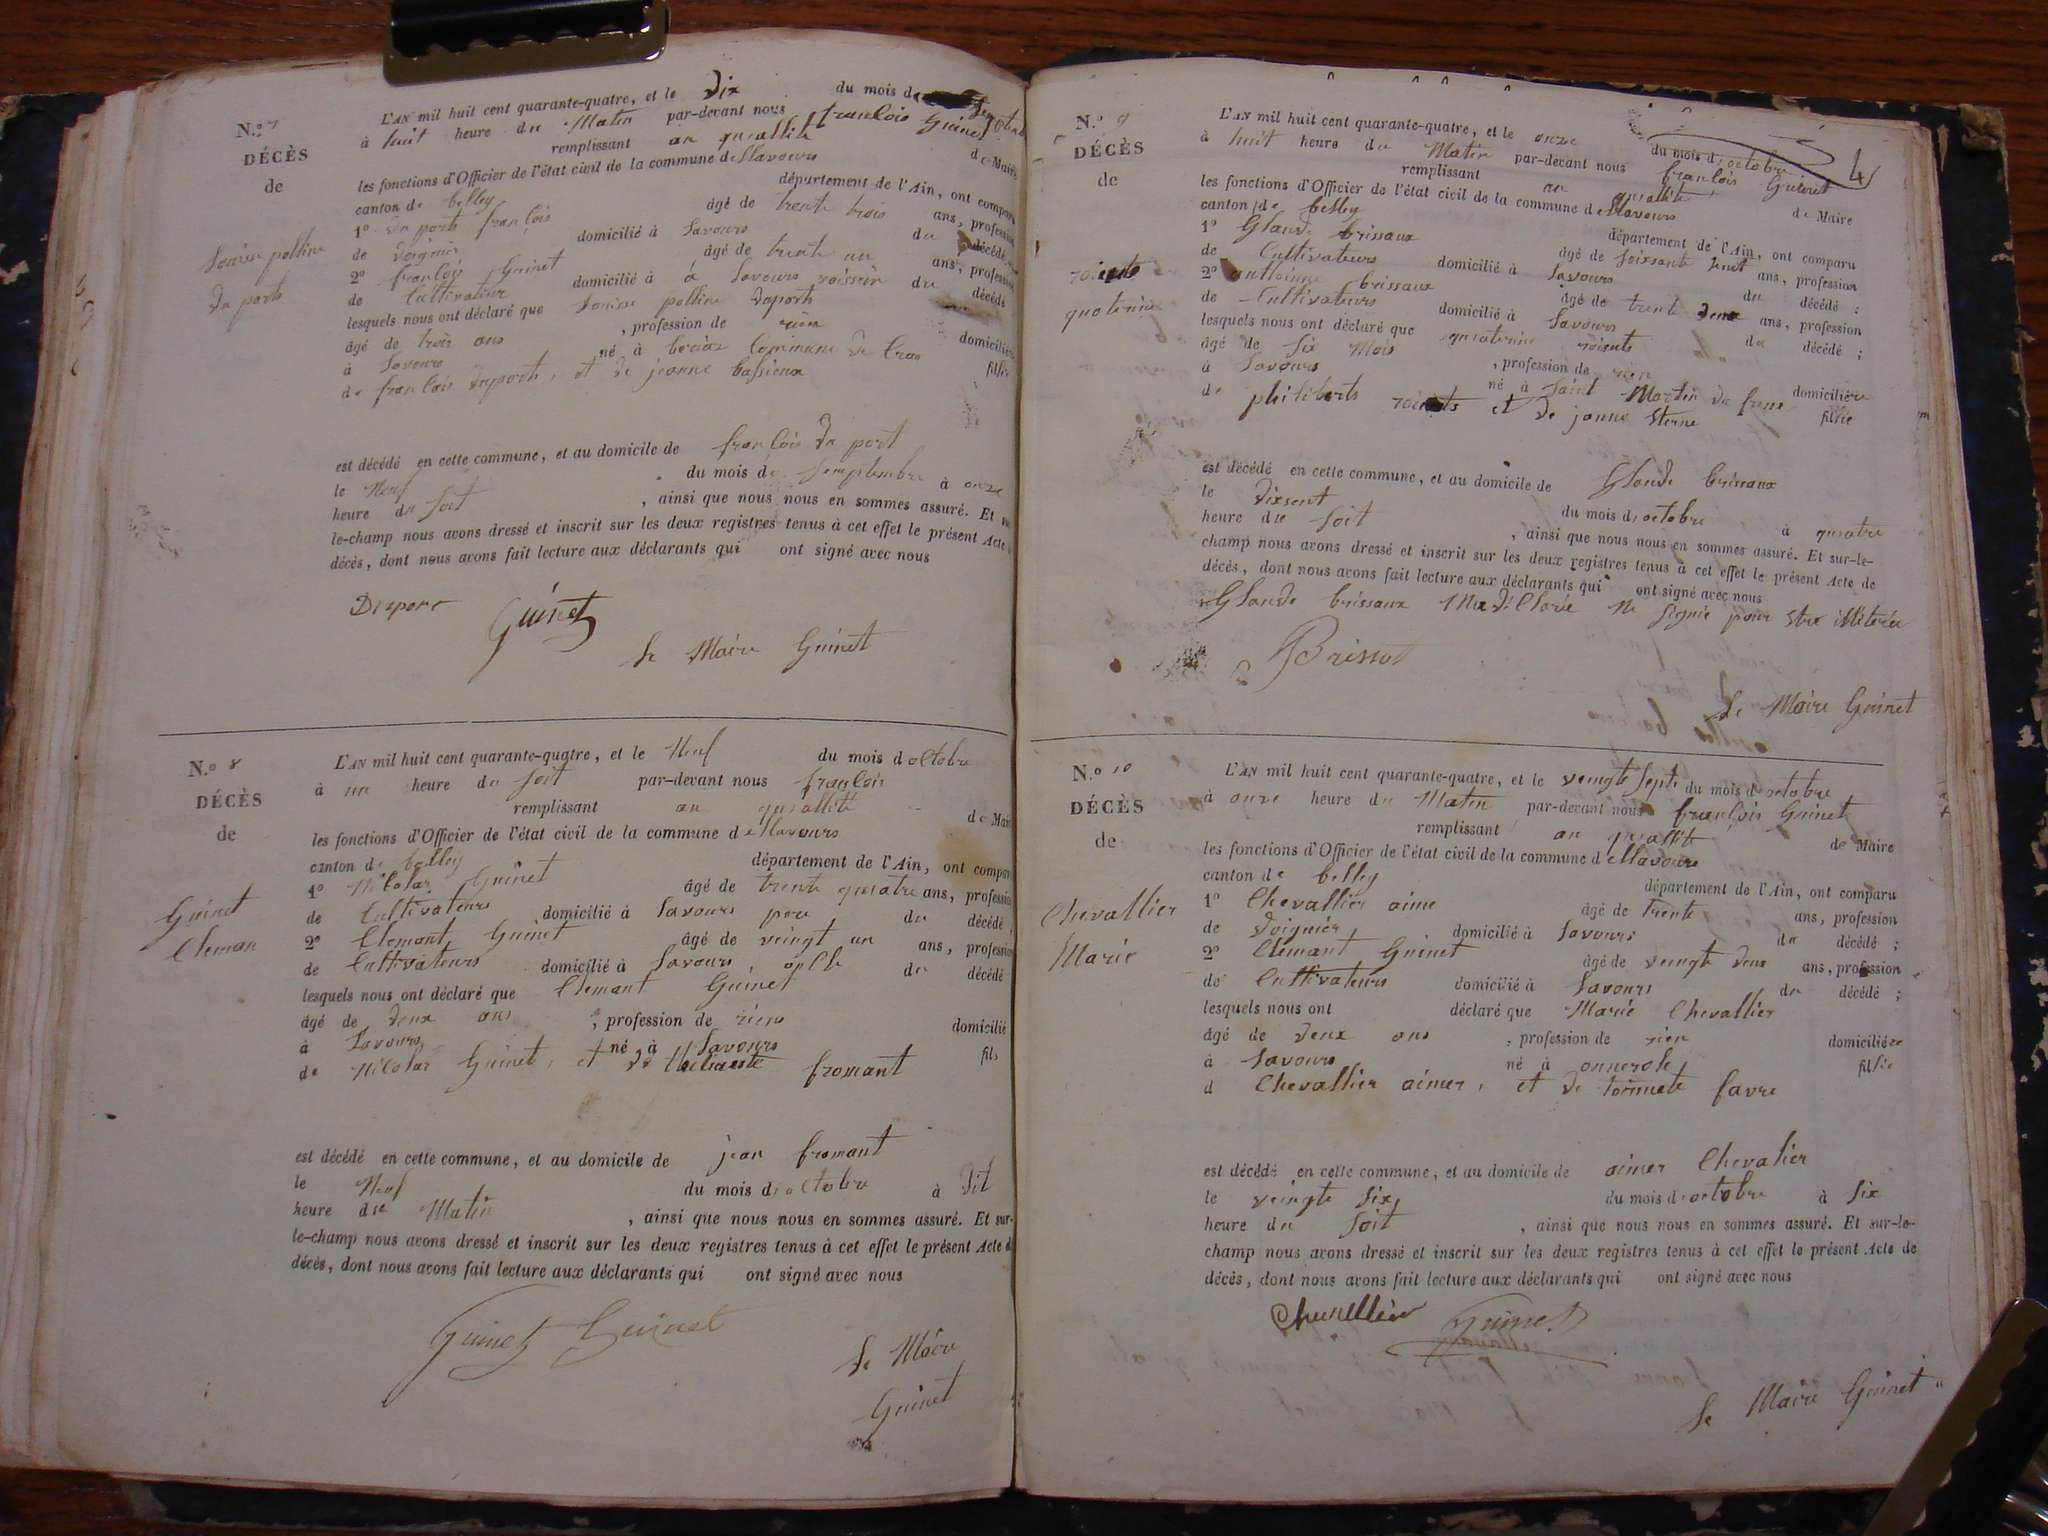 N.º 7
DÉCÈS
de
Louise polline
Du ports
L'AN mil huit cent quarante-quatre, et le Dix du mois de
à huit heure du Matin par-devant nous françois Guinet
remplissant an quallité de Maire
les fonctions d'Officier de l'état civil de la commune de Llavours
canton de belley département de l'Ain, ont comparu
1º Du ports françois âgé de trente trois ans, profession
de Voignier domicilié à Lavours du décédé
2º françois Guinet âgé de trente un ans, profession
de Cultivateur domicilié à à Lavours voissin du décédé
lesquels nous ont déclaré que Louisse polline Duports
âgé de trois ans, profession de rien domicilié
à Lavours né à
de françois Duports, et de jeanne bassieux fille
est décédé en cette commune, et au domicile de françois Du port
le Neuf du mois de Semptembre à onze
heure du Soit, ainsi que nous nous en sommes assuré. Et
le-champ nous avons dressé et inscrit sur les deux registres tenus à cet effet le présent Acte
décès, dont nous avons fait lecture aux déclarants qui ont signé avec nous
Duport Guinet
Le Maire Guinet
N.º 8
DÉCÈS
de
Guinet
Cleman
L'AN mil huit cent quarante-quatre, et le Neuf du mois d octobre
à un heure du Soit par-devant nous françois
remplissant an quallité de Mair
les fonctions d'Officier de l'état civil de la commune de Llavours
canton de belley département de l'Ain, ont compar
1º Nicolas Guinet âgé de trente quatre ans, profession
de Cultivateurs domicilié à Lavours pere du décédé ;
2º Clemant Guinet âgé de veingt un ans, profession
de Cultivateurs domicilié à Lavours, du décédé
lesquels nous ont déclaré que Clemant Guinet
âgé de Deux ans, profession de riens domicilié
à Lavours né à Lavours
de Nicolas Guinet, et de fromant fils
est décédé en cette commune, et au domicile de jean fromant
le Neuf du mois d octobre à Dit
heure du Matin, ainsi que nous nous en sommes assuré. Et sur-
le-champ nous avons dressé et inscrit sur les deux registres tenus à cet effet le présent Acte d
décès, dont nous avons fait lecture aux déclarants qui ont signé avec nous
Guinet Guinet
Le Maire
Guinet
4
N.º 9
DÉCÈS
de
quaterine
L'AN mil huit cent quarante-quatre, et le onze du mois d octobre
à huit heure du Matin par-devant nous françois Guinet
remplissant an quallité de Maire
les fonctions d'Officier de l'état civil de la commune de Llavours
canton de belley département de l'Ain, ont comparu
1º Glaude brissaux âgé de Soixsante huit ans, profession
de Cultivateurs domicilié à Lavours du décédé ;
2º anttoinne brissaux âgé de trente Deux ans, profession
de Cultivateurs domicilié à Lavours du décédé ;
lesquels nous ont déclaré que quaterine
âgé de Six Mois, profession de rien domicilié
à Lavours né à Saint Martin du
de philiberts et de janne Sterne fille
est décédé en cette commune, et au domicile de Glaude brissaux
le Dixsent du mois d octobre à quatre
heure du Soit, ainsi que nous nous en sommes assuré. Et sur-le-
champ nous avons dressé et inscrit sur les deux registres tenus à cet effet le présent Acte de
décès, dont nous avons fait lecture aux déclarants qui ont signé avec nous
Glaude brissaux Ne Signie pour
Brissot
Le Maire Guinet
N.º 10
DÉCÈS
de
Chevallier
Marie
L'AN mil huit cent quarante-quatre, et le veingte Septe du mois d octobre
à onze heure du Matin par-devant nous françois Guinet
remplissant an quallité de Maire
les fonctions d'Officier de l'état civil de la commune de Llavours
canton de belley département de l'Ain, ont comparu
1º Chevallier aime âgé de Trente ans, profession
de Voignier domicilié à Lavours du décédé ;
2º Clemant Guinet âgé de veingte Deux ans, profession
de Cultivateurs domicilié à Lavours du décédé ;
lesquels nous ont déclaré que Marie Chevallier
âgé de Deux ans, profession de rien domicilié
à Lavours né à
d Chevallier aimer, et de favre fille
est décédé en cette commune, et au domicile de aimer Chevalier
le veingte Six du mois d octobre à Six
heure du Soit, ainsi que nous nous en sommes assuré. Et sur-le-
champ nous avons dressé et inscrit sur les deux registres tenus à cet effet le présent Acte de
décès, dont nous avons fait lecture aux déclarants qui ont signé avec nous
Chevallier Guinet
Le Maire Guinet